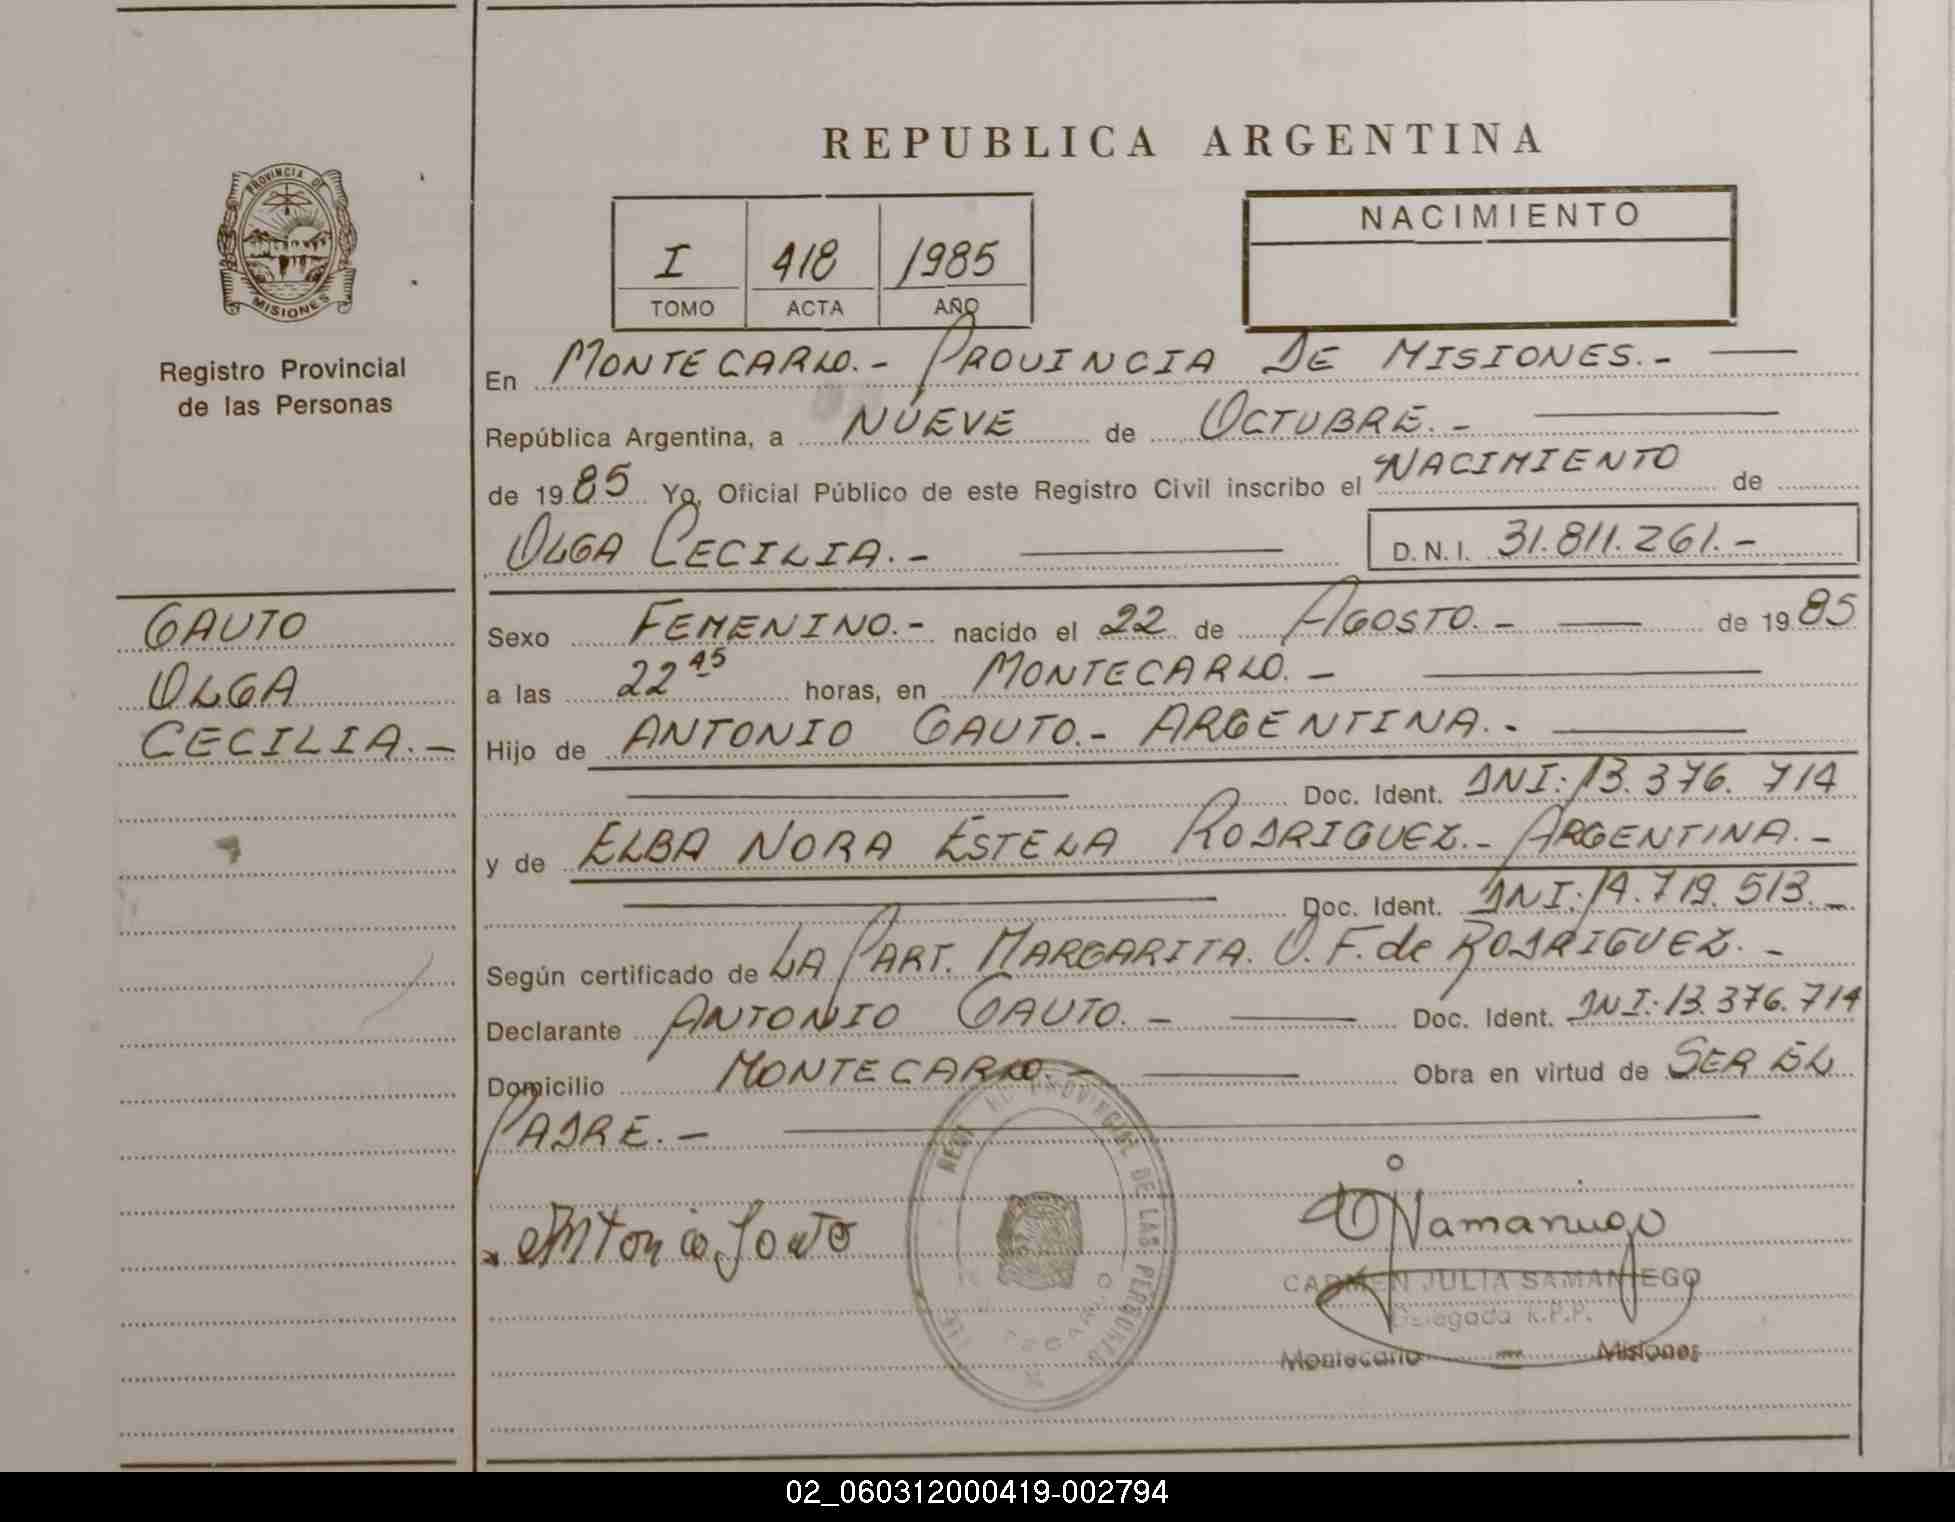 REPUBLICA ARGENTINA
PROVINCIA DE
MISIONES
Registro Provincial
de las Personas
I 418 1985
TOMO ACTA AÑO
NACIMIENTO
En MONTECARLO.- PROVINCIA DE MISIONES.-
República Argentina, a NUEVE de OCTUBRE.-
de 1985 Yo, Oficial Público de este Registro Civil inscribo el NACIMIENTO de
OLGA CECILIA.- D.N.I. 31.811.261.-
GAUTO
OLGA
CECILIA.-
Sexo FEMENINO.- nacido el 22 de AGOSTO.- de 1985
a las 22 45 horas, en MONTECARLO.-
Hijo de ANTONIO GAUTO.- ARGENTINA.-
Doc. Ident. DNI: 13.376.714
y de ELBA NORA ESTELA RODRIGUEZ.- ARGENTINA.-
Doc. Ident. DNI: 14.719.513.-
Según certificado de LA PART. MARGARITA. O. F. de RODRIGUEZ.-
Declarante ANTONIO GAUTO.- Doc. Ident. DNI: 13.376.714
Domicilio MONTECARLO.- Obra en virtud de SER EL
PADRE.-
Antonio Gauto
PROVINCIAL DE LAS PERSONAS
CARMEN JULIA SAMANIEGO
Delegada R.P.P.
Montecarlo - Misiones
02_060312000419-002794